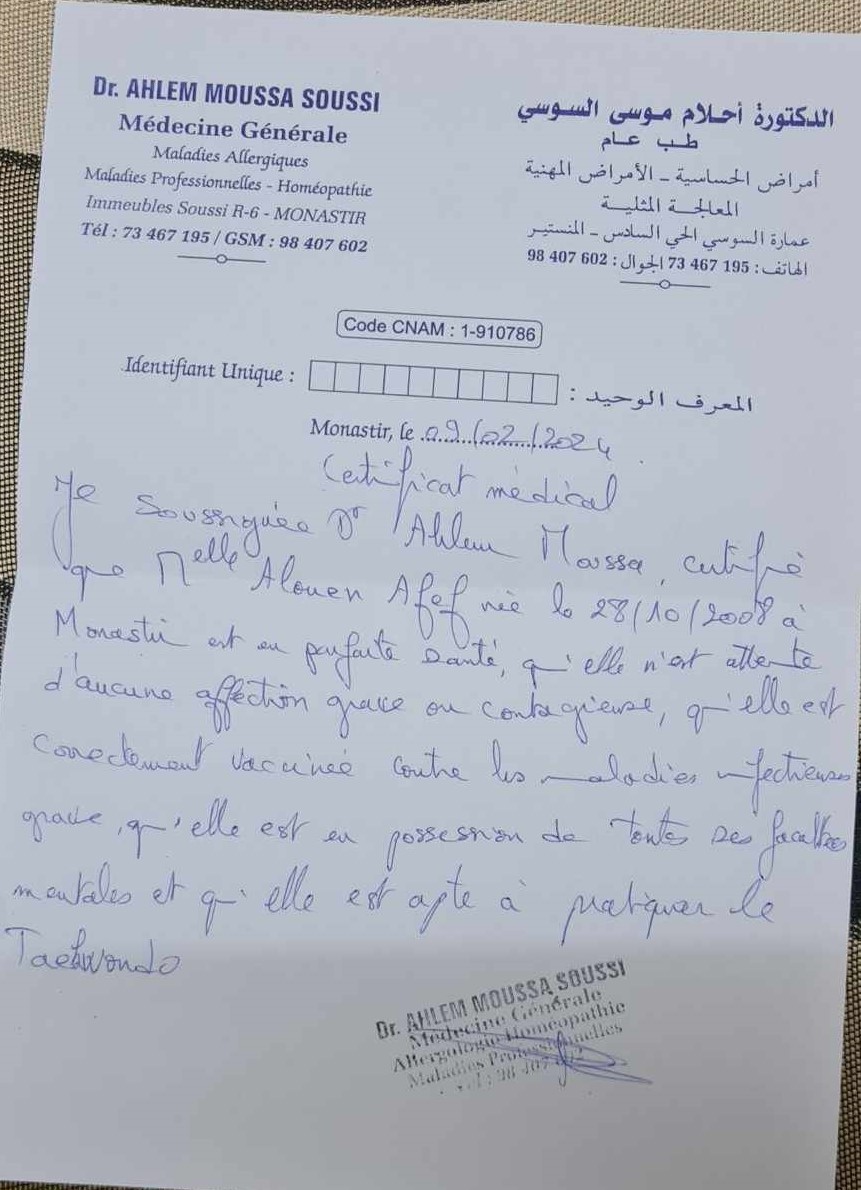 Dr. AHLEM MOUSSA SOUSSI
Médecine Générale
Maladies Allergiques
Maladies Professionnelles - Homéopathie
Immeubles Soussi R-6 - MONASTIR
Tél : 73 467 195 / GSM : 98 407 602
الدكتورة أحلام موسى السوسي
طب عام
أمراض الحساسية - الأمراض المهنية
المعالجة المثلية
عمارة السوسي الحي السادس - المنستير
الهاتف : 195 467 73 الجوال : 602 407 98
Code CNAM : 1-910786
Identifiant Unique : المعرف الوحيد :
Monastir, le 09/02/2024
Certificat médical
Je Soussignée Dr Ahlem Moussa, certifie
que Melle Alouen Afef née le 28/10/2008 à
Monastir est en parfaite santé, qu'elle n'est atteinte
d'aucune affection grave ou contagieuse, qu'elle est
correctement vaccinée contre les maladies infectieuses
grave, qu'elle est en possession de toutes ses facultés
mentales et qu'elle est apte à pratiquer le
Taekwondo
Dr. AHLEM MOUSSA SOUSSI
Médecine Générale
Allergologie Homéopathie
Maladies Professionnelles
Tél : 98 407 602